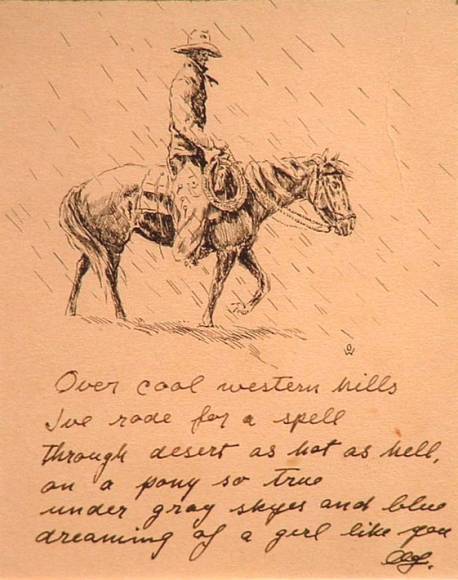 Over cool western hills
I've rode for a spell
through desert as hot as hell,
on a pony so true
under gray skyes and blue
dreaming of a girl like you